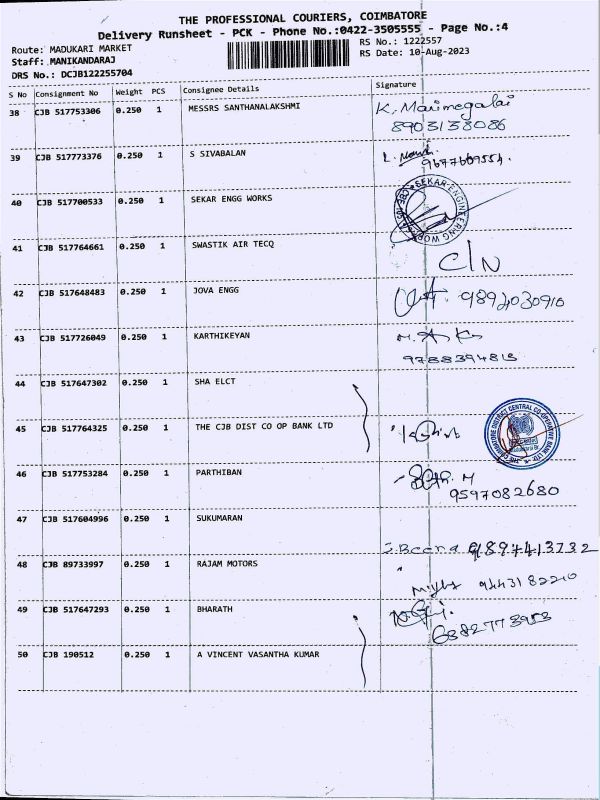 THE PROFESSIONAL COURIERS, COIMBATORE
Delivery Runsheet - PCK - Phone No.:0422-3505555 - Page No.:4
Route: MADUKARI MARKET
RS No.: 1222557
Staff: MANIKANDARAJ
RS Date: 10-Aug-2023
DRS No.: DCJB122255704
S No Consignment No Weight PCS Consignee Details Signature
38 CJB 517753306 0.250 1 MESSRS SANTHANALAKSHMI K. Manimegalai
8903138086
39 CJB 517773376 0.250 1 S SIVABALAN
9677609554.
40 CJB 517700533 0.250 1 SEKAR ENGG WORKS SEKAR ENGINEERING WORKS
41 CJB 517764661 0.250 1 SWASTIK AIR TECQ C/N
42 CJB 517648483 0.250 1 JOVA ENGG
43 CJB 517726049 0.250 1 KARTHIKEYAN
9788394815
44 CJB 517647302 0.250 1 SHA ELCT
45 CJB 517764325 0.250 1 THE CJB DIST CO OP BANK LTD
46 CJB 517753284 0.250 1 PARTHIBAN
9597082680
47 CJB 517604996 0.250 1 SUKUMARAN
9897413732
48 CJB 89733997 0.250 1 RAJAM MOTORS
9443182210
49 CJB 517647293 0.250 1 BHARATH
6382773953
50 CJB 190512 0.250 1 A VINCENT VASANTHA KUMAR